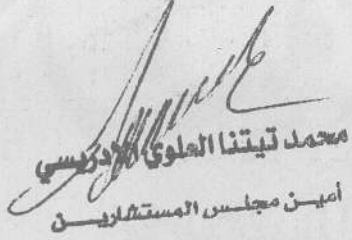 محمد تيتنا العلوي الادريسي
أمين مجلس المستشارين